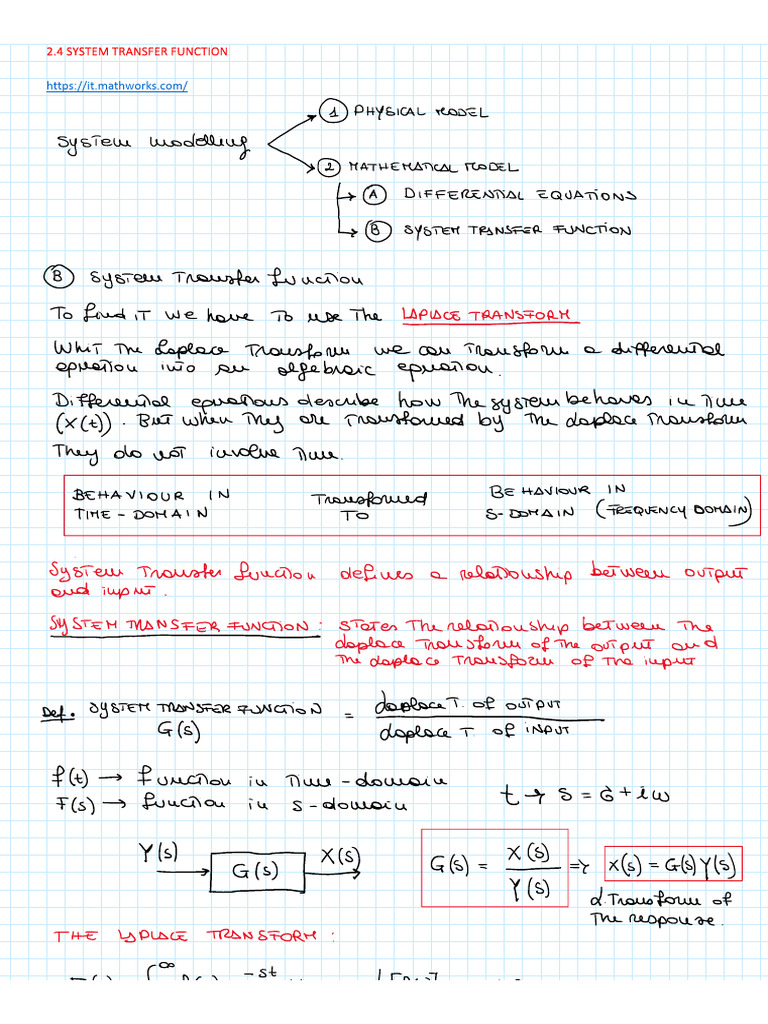 2.4 SYSTEM TRANSFER FUNCTION
https://it.mathworks.com/
System modelling
① PHYSICAL MODEL
② MATHEMATICAL MODEL
Ⓐ DIFFERENTIAL EQUATIONS
Ⓑ SYSTEM TRANSFER FUNCTION
Ⓑ System Transfer function
To find it we have to use the LAPLACE TRANSFORM
Whit the Laplace Transform we can transform a differential
equation into an algebraic equation.
Differential equations describe how the system behaves in time
(x(t)). But when they are transformed by the Laplace transform
They do not involve time.
BEHAVIOUR IN Transformed BEHAVIOUR IN
TIME-DOMAIN TO S-DOMAIN (FREQUENCY DOMAIN)
System Transfer function defines a relationship between output
and input.
SYSTEM TRANSFER FUNCTION: states the relationship between the
Laplace transform of the output and
the Laplace transform of the input
Def. SYSTEM TRANSFER FUNCTION = Laplace T. of OUTPUT
G(s) Laplace T of INPUT
f(t) → function in time-domain
F(s) → function in s-domain
t → s = σ + iω
Y(s) G(s) X(s)
G(s) = X(s) / Y(s) ⇒ X(s) = G(s) Y(s)
L. Transform of
the response.
THE LAPLACE TRANSFORM: